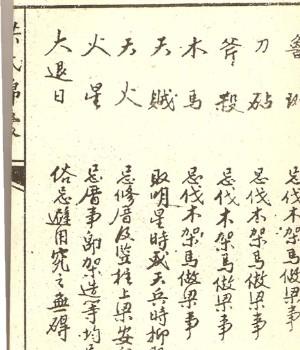 魯班 忌伐木架馬做梁事
刀砧 忌伐木架馬做梁事
斧殺 忌伐木架馬做梁事
木馬 忌伐木架馬做梁事
天賊 取明星時或天兵時抑
天火 忌修厝及竪柱上梁安
火星 忌厝事即架造等均
大退日 俗忌避用究之無碍